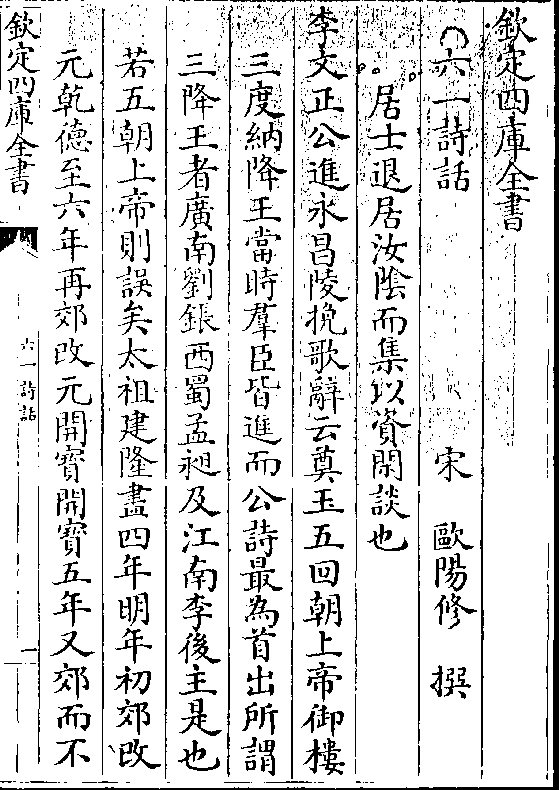 欽定四庫全書
六一詩話　宋　歐陽修　撰
居士退居汝陰而集以資閑談也
李文正公進永昌陵挽歌辭云奠玉五回朝上帝御樓
三度納降王當時羣臣皆進而公詩最為首出所謂
三降王者廣南劉鋹西蜀孟昶及江南李後主是也
若五朝上帝則誤矣太祖建隆盡四年明年初郊改
元乾德至六年再郊改元開寳開寳五年又郊而不
欽定四庫全書
六一詩話
一